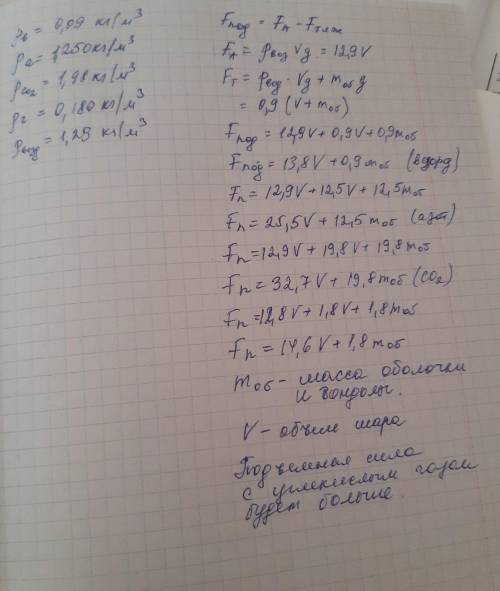 ρв = 0,09 кг/м³
ρа = 1,250 кг/м³
ρco₂ = 1,98 кг/м³
ρг = 0,180 кг/м³
ρвозд = 1,29 кг/м³
Fпод = FA - Fтяж
FA = ρвоз Vg = 12,9V
FT = ρвод · Vg + mоб g
= 0,9 (V + mоб)
Fпод = 12,9V + 0,9V + 0,9mоб
Fпод = 13,8V + 0,9mоб (водор)
Fп = 12,9V + 12,5V + 12,5mоб
Fп = 25,5V + 12,5mоб (азот)
Fп = 12,9V + 19,8V + 19,8mоб
Fп = 32,7V + 19,8mоб (CO₂)
Fп = 12,8V + 1,8V + 1,8mоб
Fп = 14,6V + 1,8mоб
mоб - масса оболочки
и гондолы.
V - объем шара
Подъемная сила
с углекислым газом
будет больше.